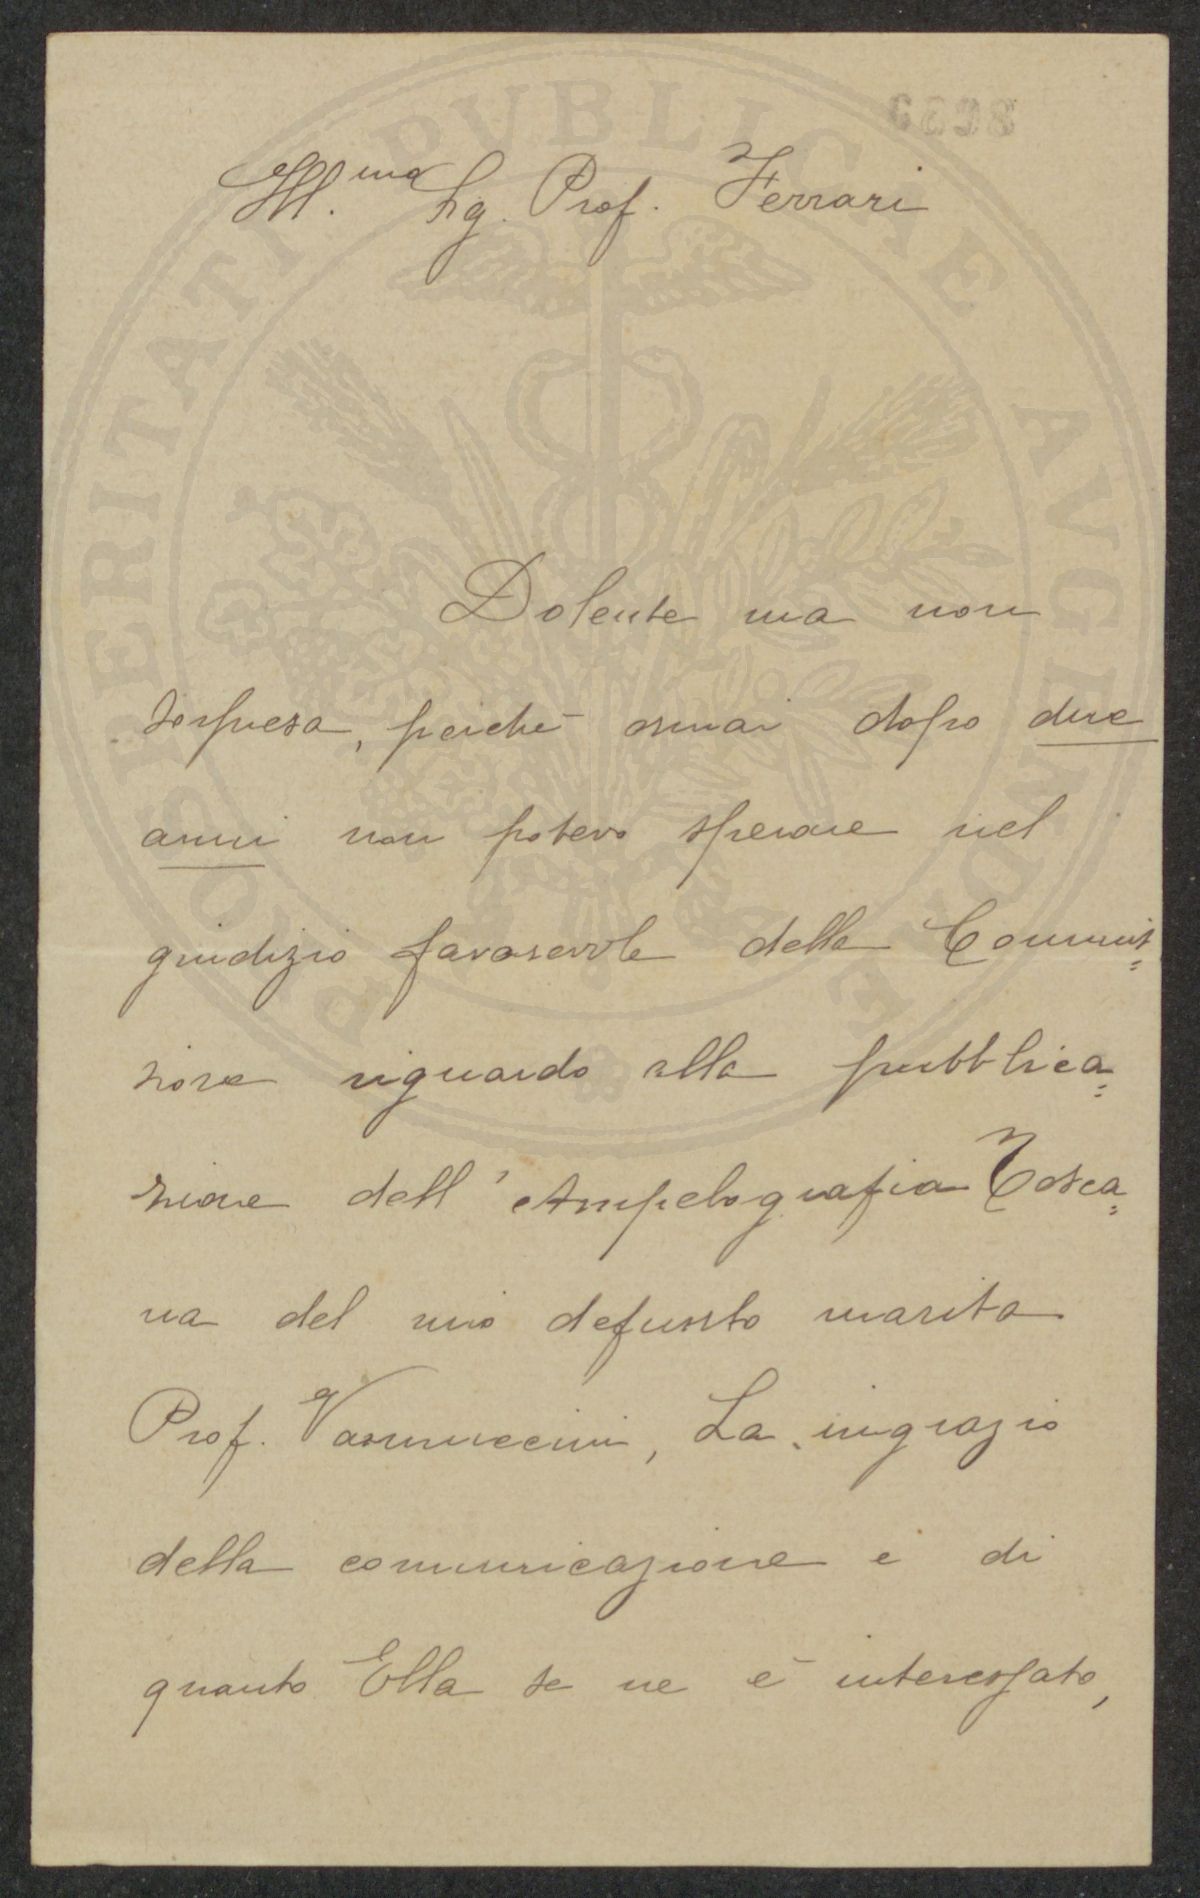 Ill.mo Sig. Prof. Ferrari
Dolente ma non
sorpresa, perchè ormai dopo due
anni non potevo sperare nel
giudizio favorevole della Commis=
sione riguardo alla pubblica=
zione dell'Ampelografia Tosca=
na del mio defunto marito
Prof. Vannuccini, La ringrazio
della comunicazione e di
quanto Ella se ne è interessato,
PROSPERITATI PVBLICAE AVGENDAE